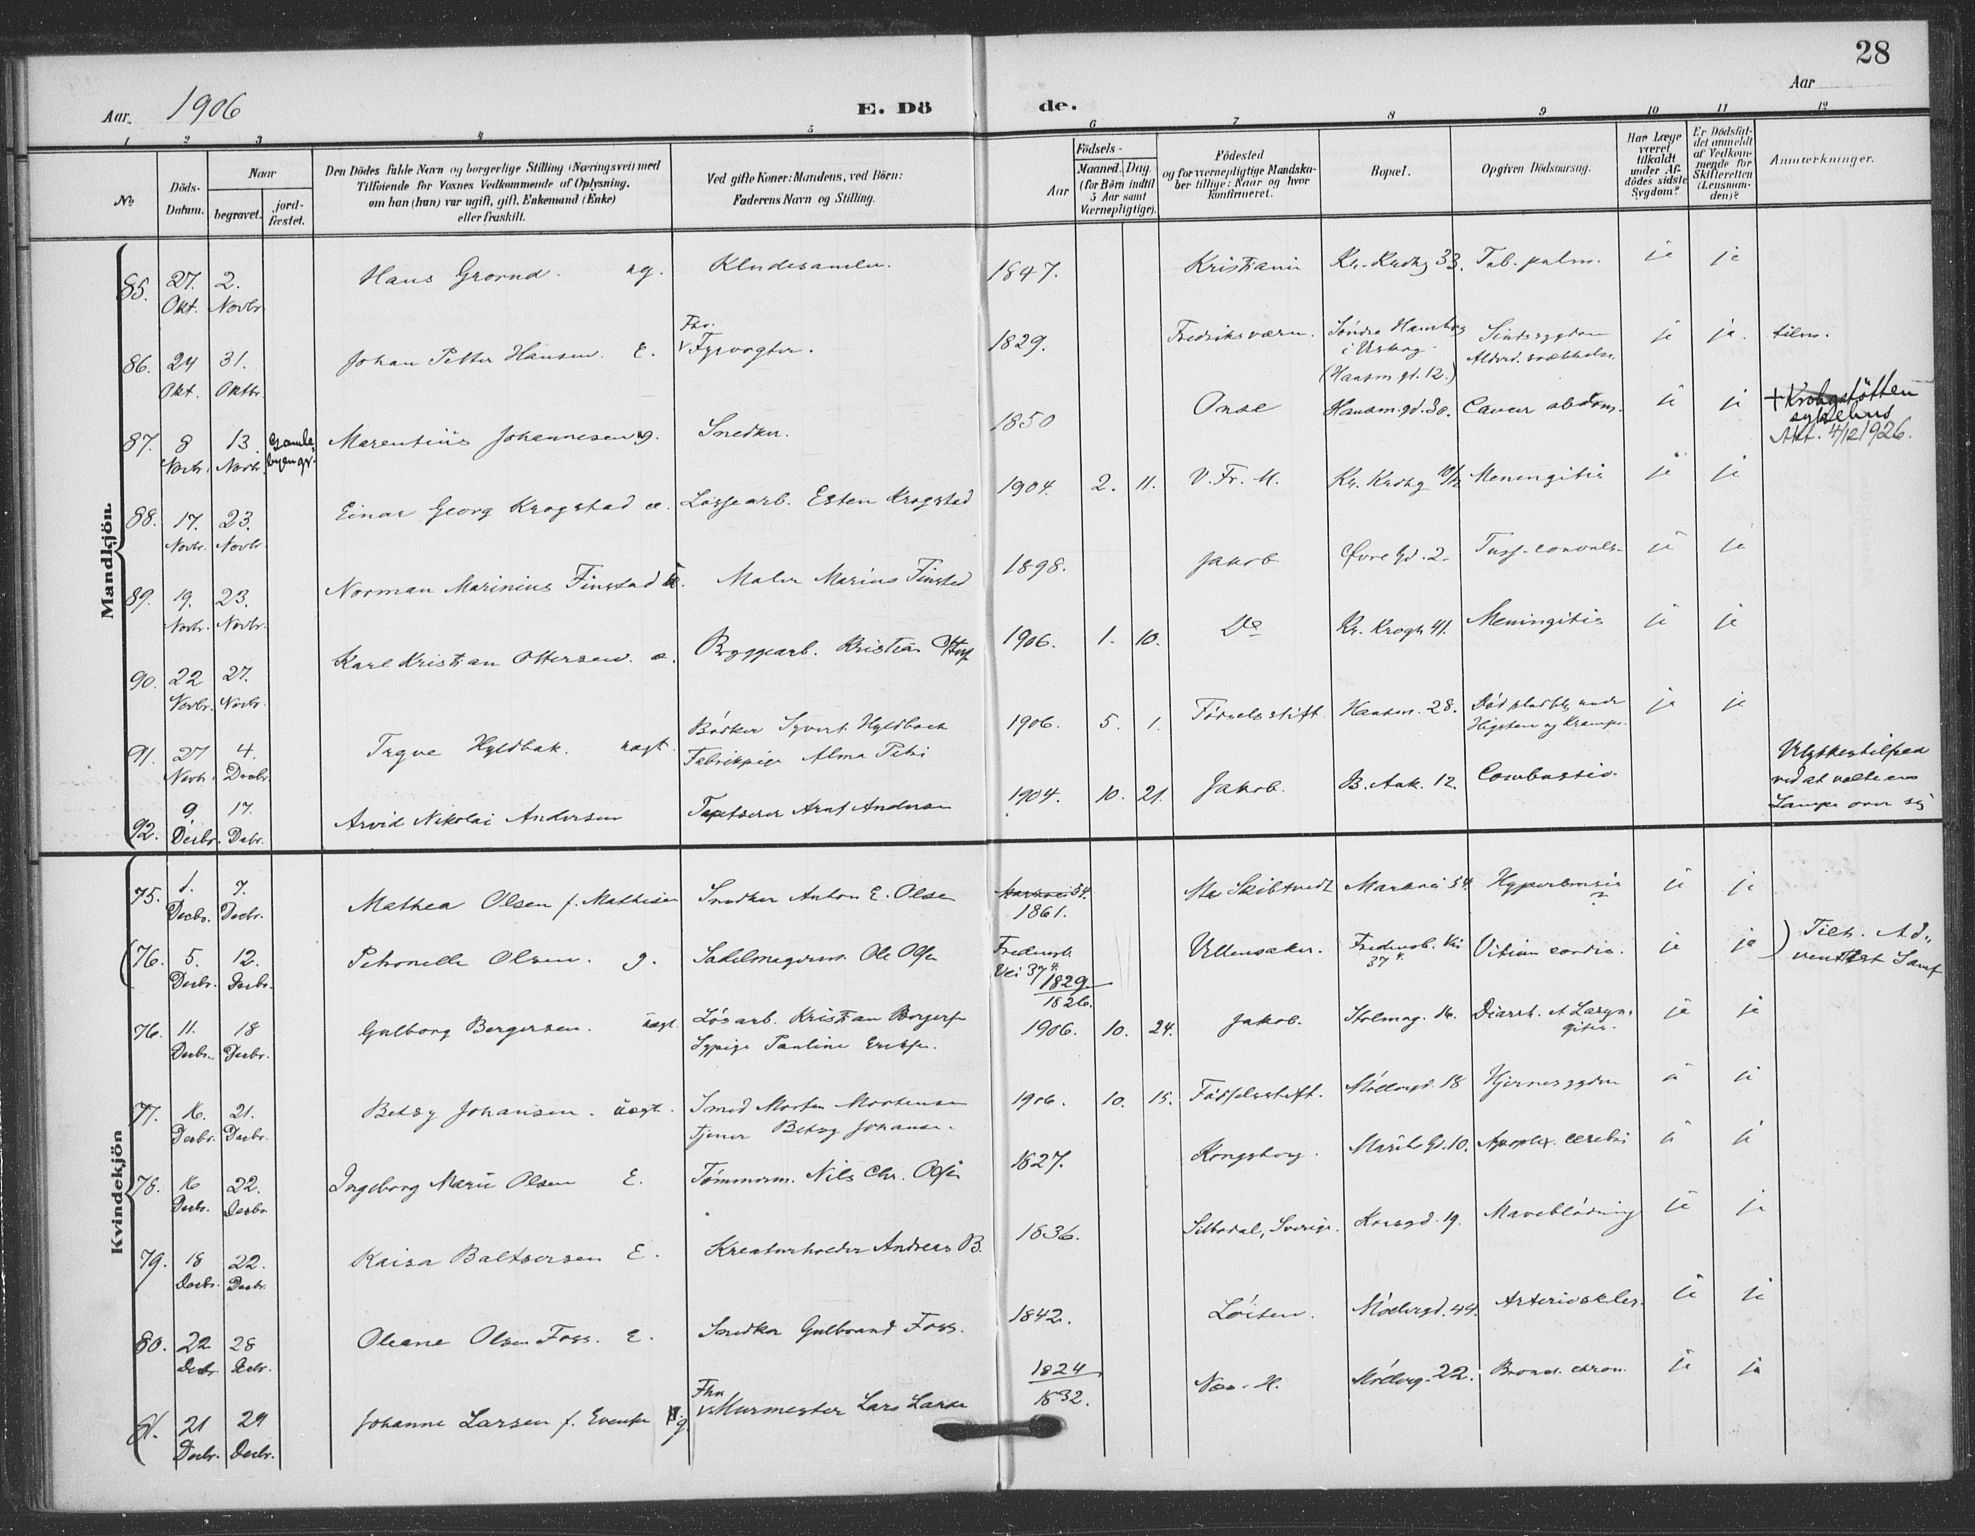 28
Aar 1906
E. Dö de.
Aar
1 2 3 4 5 6 7 8 9 10 11 12
No
Döds-Datum.
Naar
begravet.
jord-fæstet.
Den Dödes fulde Navn og borgerlige Stilling (Næringsvei) med
Tilföiende for Voxnes Vedkommende af Oplysning,
om han (hun) var ugift, gift, Enkemand (Enke)
eller fraskilt.
Ved gifte Koner: Mandens, ved Börn:
Faderens Navn og Stilling.
Födsels-
Aar
Maaned. Dag.
(for Börn indtil
5 Aar samt
Værnepligtige).
Födested
og for værnepligtige Mandska-
ber tillige: Naar og hvor
konfirmeret.
Bopæl.
Opgiven Dödsaarsag.
Har Læge
været
tilkaldt
under Af-
dödes sidste
Sygdom?
Er Dödsfal-
det anmeldt
af Vedkom-
mende for
Skifteretten
(Lensman-
den)?
Anmærkninger.
Mandkjön.
85. 27. Okt. 2. Novbr. Hans Grornd. ug. Kludesamler. 1847. Kristiania Kr. Krohg 33. Tub. pulm. ja ja
86. 24 Okt. 31. Oktbr. Johan Petter Hansen. E. Fhv. Fyrvogter. 1829. Fredriksværn. Søndre Hamborg i Urskog (Hausm. gt. 12.) Sindssygdom Alderd. svækkelse ja ja. tilm.
87. 8 Novbr. 13. Novbr. Gamlebyen gr. Marentius Johannesen g. Snedker. 1850 Onsø Hausm. gd. 30. Cancer abdom. ja ja + Krohgstøtten sykehus Akt. 4/12 1926.
88. 17. Novbr. 23. Novbr. Einar Georg Krogstad æ. Løssearb. Esten Krogstad 1904. 2. 11. V. Fr. M. Kr. Krohg Meningitis ja ja
89. 19. Novbr. 23. Novbr. Norman Marinius Finstad æ. Maler Marius Finstad 1898. Jakob Øvre Gd. 2. Tuss. convuls. ja ja
90. 22 Novbr. 27. Novbr. Karl Kristian Ottersen. æ. Byggearb. Kristian 1906. 1. 10. Do Kr. Krogh 41. Meningitis ja ja
91. 27 Novbr. 4. Decbr. Trygve Hyldbak. uægt. Bødker Syvert Hyldbach Fabrikpige Alma Petri 1906. 5. 1. Fødselsstift. Hausm. 28. Død under Higsten og Krampe. ja ja
92. 9 Decbr. 17. Debr. Arvid Nikolai Andersen Tapetserer Arnt Andersen 1904. 10. 21. Jakob. B. Ank. 12. Combustio. Ulykkestilfæld ved at velte en Lampe over sig
Kvindekjön
75. 1. Decbr. 7. Decbr. Mathea Olsen f. Mathisen Snedker Anton E. Olsen 54. 1861. Skibtvedt Markvei 54. ja ja
(76. 5. Decbr. 12. Decbr. Petronelle Olsen. g. Sadelmagersv. Ole Olsen Fredensb. Vei 37 4. 1829 1826. Ullensaker. Fredensb. Vei 37 4. Vitium cordis. ja ja ) Tilh. Ad„ ventist Samf
76. 11. Decbr. 18 Decbr. Gulborg Bergersen. uægt. Løsarb. Kristian Bergers. Sypige Pauline Eriksen. 1906. 10. 24. Jakob. Stolmag. 16. Diarrh. et Laryngitis. ja ja
77. 16. Decbr. 21. Decbr. Betsy Johansen. uægt. Smed Morten Mortensen Tjener Betsy Johanse. 1906. 10. 15. Fødselsstift. Møllergd. 18 Hjernesygdom ja ja
78. 16 Decbr. 22. Decbr. Ingeborg Marie Olsen E. Tømmerm. Nils Chr. Olsen 1827. Kongsberg. Gd. 10. Apoplex. cerebri ja ja
79. 18 Decbr. 22. Decbr. Kaisa Baltsersen E. Kreaturholder Andreas B. 1836. Silbodal, Sverige. Korsgd. 19. Maveblødning ja ja
80. 22 Decbr. 28 Decbr. Oleane Olsen Foss. E. Snedker Gulbrand Foss. 1842. Løiten. Møllergd. 44. Arterioskler. ja ja
81. 21 Decbr. 29 Decbr. Johanne Larsen f. Evensen g. Fhv Murmester Lars Larse 1824 1832. Nes. H. Møllerg. 22. Bronch. chron. ja ja